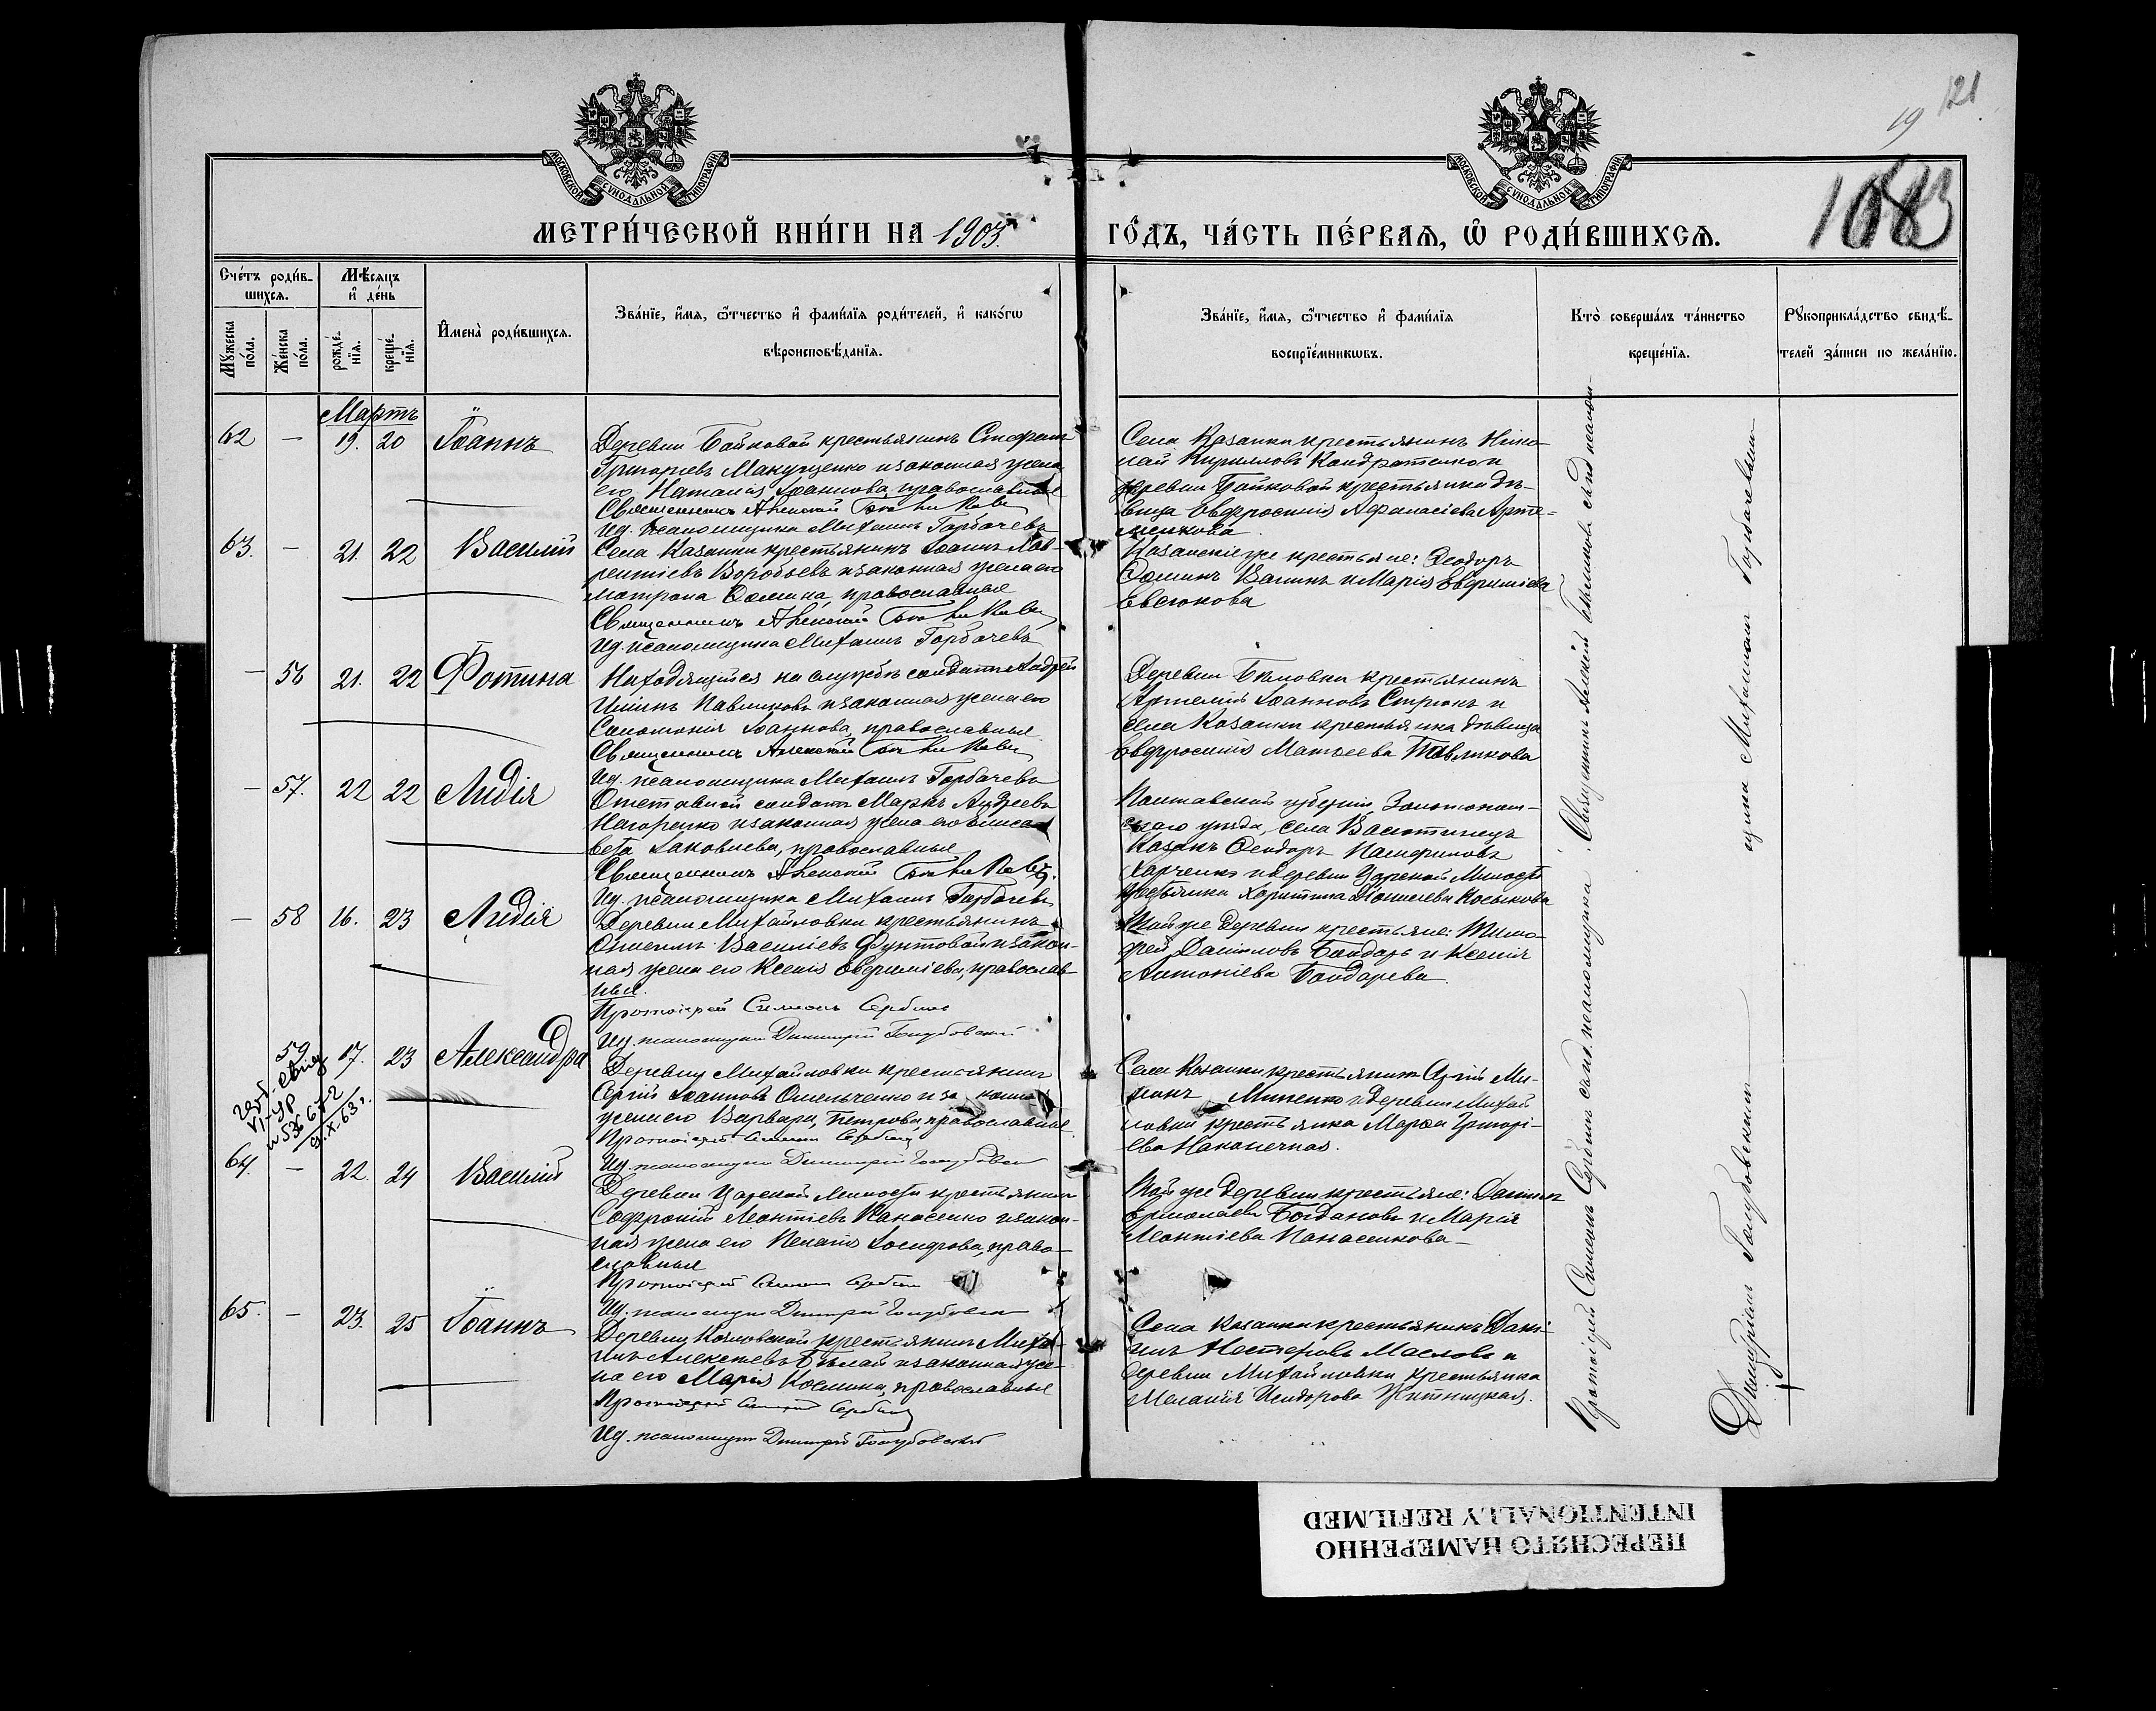 121
19
1083
МОСКОВСКОЙ СУНОДАЛЬНОЙ ТИПОГРАФІИ.
МОСКОВСКОЙ СУНОДАЛЬНОЙ ТИПОГРАФІИ.
МЕТРИ́ЧЕСКОЙ КНИ́ГИ НА 1903.
ГО́ДЪ, ЧА́СТЬ ПЕ́РВАѦ, Ѡ РОДИ́ВШИХСѦ.
Сче́тъ роди́в-
шихсѧ.
Мѣ́сѧцъ
и҆ де́нь
Мꙋ́жеска по́ла.
Же́нска по́ла.
рожде́-
нїѧ.
креще́-
нїѧ.
И҆мена̀ роди́вшихсѧ.
Зва́нїе, и҆́мѧ, ѻ҆́тчество и҆ фами́лїѧ роди́телей, и҆ како́гѡ
вѣроисповѣ́данїѧ.
Зва́нїе, и҆́мѧ, ѻ҆́тчество и҆ фами́лїѧ
воспрїе́мникѡвъ.
Кто̀ соверша́лъ та́инство
креще́нїѧ.
Рꙋкоприкла́дство свидѣ́-
телей за́писи по жела́нїю.
Мартъ
62 — 19. 20 Іоаннъ
Деревни Байковой крестьянинъ Стефанъ
Григорьевъ Макущенко и законная жена
его Наталія Іоаннова, православные
Священникъ Алексій
Ид. псаломщика Михаилъ Горбачевъ
Села Казанки крестьянинъ Нико-
лай Кириловъ Кондратенко и
деревни Байковой крестьянка дѣ-
вица Евфросинія Афанасіева Арте-
менкова
63. — 21. 22 Василій
Села Казанки крестьянинъ Іоаннъ Лав-
рентіевъ Воробьевъ и законная жена его
Матрона Ѳомина, православные
Священникъ Алексій
Ид. псаломщика Михаилъ Горбачевъ
Казанскіе же крестьяне: Ѳеодоръ
Ѳоминъ Ванинъ и Марія Евфиміева
Евсюкова
— 56 21. 22 Фотина
Находящійся на службѣ солдатъ Андрей
Павликовъ и законная жена его
Соломонія Іоаннова, православные
Священникъ Алексій
Ид. псаломщика Михаилъ Горбачевъ
Деревни крестьянинъ
Артемій Іоанновъ Стрюкъ и
села Казанки крестьянка дѣвица
Евфросинія Матѳеева Павликова
— 57. 22 22 Лидія
Отставной солдатъ Маркъ Андреевъ
Нагоренко и законная жена его Елиса-
вета Іаковлева, православные
Священникъ Алексій
Ид. псаломщика Михаилъ Горбачевъ
Полтавской губерніи, Золотонош-
скаго уѣзда, села Васютинецъ
Казакъ Ѳеодоръ
Харченко и деревни Царской Милости
крестьянка Харитина Діонисіева Косыкова
— 58 16. 23 Лидія
Деревни Михайловки крестьянинъ
Василіевъ Фунтовой и закон-
ная жена его Ксенія Евфиміева, православ-
ные.
Протоіерей Симеонъ Сербинъ
Ид. псаломщика Димитрій Голубовскій
Той же деревни крестьяне: Тимо-
фей Даниловъ Бондарь и Ксенія
Антоніева Бондарева.
59 17. 23 Александра
Деревни Михайловки крестьянинъ
Сергій Іоанновъ Омельченко и за кон
жена его Варвара Петрова, православные
Протоіерей Симеонъ Сербинъ
Ид. псаломщика Димитрій Голубовскій
Села Казанки крестьянинъ Сергій Ми-
Миненко и деревни Михай-
ловки крестьянка Марѳа Григорі-
ева Наконечная.
64. — 22. 24 Василій
Деревни Царской Милости крестьянинъ
Софроній Леонтіевъ Панасенко и закон-
ная жена его Пелагія Іосифова, право-
славные
Протоіерей Симеонъ Сербинъ
Ид. псаломщика Димитрій Голубовскій
Той же деревни крестьяне: Даніилъ
Ермолаевъ Богдановъ и Марія
Леонтіева Панасенкова
65. — 23. 25 Іоаннъ
Деревни крестьянинъ Миха-
илъ Алексѣевъ Бѣлай и законная же-
на его Марія Космина, православные
Протоіерей Симеонъ Сербинъ
Ид. псаломщика Димитрій Голубовскій
Села Казанки крестьянинъ Дані-
илъ Несторовъ Масловъ и
деревни Михайловки крестьянка
Меланія Исидорова Житницкая.
Протоіерей Симеонъ Сербинъ съ ид. псаломщика. Священникъ Алексій съ ид. псалом-
Димитріемъ Голубовскимъ
щика Михаиломъ Горбачевымъ
ПЕРЕСНЯТО НАМЕРЕННО
INTENTIONALLY REFILMED